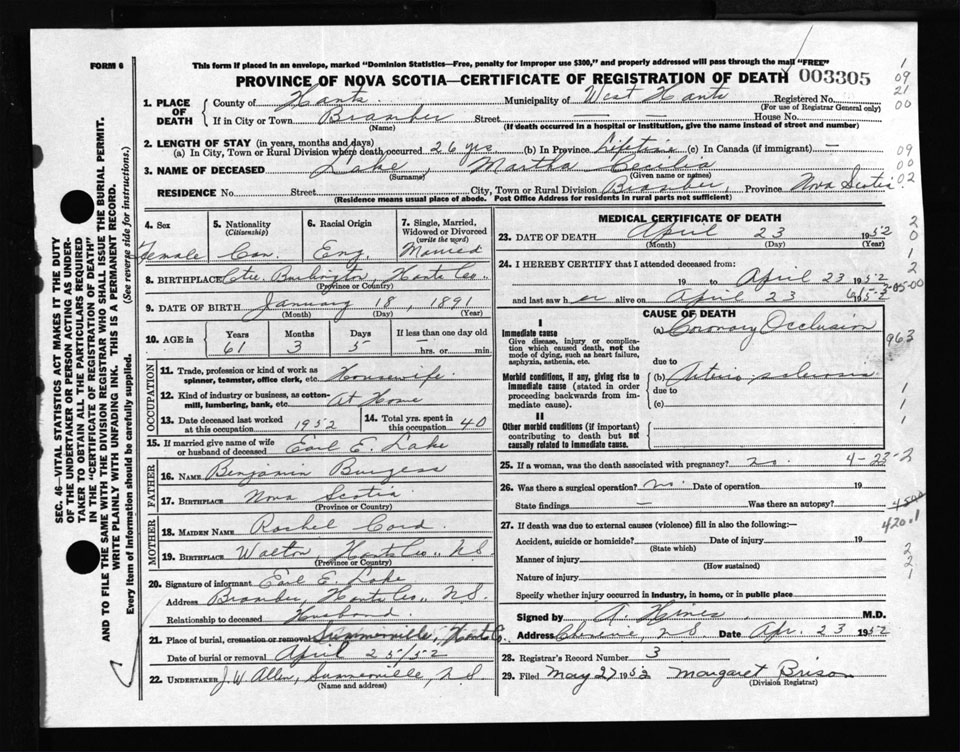 FORM 6
This form if placed in an envelope, marked "Dominion Statistics—Free, penalty for improper use $300," and properly addressed will pass through the mail "FREE"
PROVINCE OF NOVA SCOTIA—CERTIFICATE OF REGISTRATION OF DEATH 003305
1. PLACE OF DEATH
County of Hants Municipality of West Hants Registered No.
(For use of Registrar General only)
If in City or Town Bramber Street — — House No.
(Name) (If death occurred in a hospital or institution, give the name instead of street and number)
2. LENGTH OF STAY (in years, months and days)
(a) In City, Town or Rural Division where death occurred 26 yrs (b) In Province Lifetime (c) In Canada (if immigrant) —
3. NAME OF DECEASED Lake, Martha Cecilia
(Surname) (Given name or names)
RESIDENCE No. Street City, Town or Rural Division Bramber, Province Nova Scotia
(Residence means usual place of abode. Post Office Address for residents in rural parts not sufficient)
4. Sex Female
5. Nationality (Citizenship) Can.
6. Racial Origin Eng.
7. Single, Married, Widowed or Divorced (write the word) Married
8. BIRTHPLACE Ctre. Burlington, Hants Co.
(Province or Country)
9. DATE OF BIRTH January 18, 1891
(Month) (Day) (Year)
10. AGE in Years 61 Months 3 Days 5 If less than one day old — hrs. or min.
OCCUPATION
11. Trade, profession or kind of work as spinner, teamster, office clerk, etc. Housewife
12. Kind of industry or business, as cotton-mill, lumbering, bank, etc. At Home
13. Date deceased last worked at this occupation 1952
14. Total yrs. spent in this occupation 40
15. If married give name of wife or husband of deceased Earl E. Lake
FATHER
16. NAME Benjamin Burgess
17. BIRTHPLACE Nova Scotia
(Province or Country)
MOTHER
18. MAIDEN NAME Rachel Cord
19. BIRTHPLACE Walton, Hants Co., N.S.
(Province or Country)
20. Signature of informant Earl E. Lake
Address Bramber, Hants Co., N.S.
Relationship to deceased Husband
21. Place of burial, cremation or removal Summerville, Hants Co.
Date of burial or removal April 25/52
22. UNDERTAKER J W Allen, Summerville, N.S.
(Name and address)
MEDICAL CERTIFICATE OF DEATH
23. DATE OF DEATH April 23 1952
(Month) (Day) (Year)
24. I HEREBY CERTIFY that I attended deceased from:
19 to April 23 1952
and last saw her alive on April 23 1952
CAUSE OF DEATH
I
Immediate cause
Give disease, injury or complication which caused death, not the mode of dying, such as heart failure, asphyxia, asthenia, etc.
(a) Coronary Occlusion
due to
Morbid conditions, if any, giving rise to immediate cause (stated in order proceeding backwards from immediate cause).
(b) Arterio sclerosis
due to
(c)
II
Other morbid conditions (if important) contributing to death but not causally related to immediate cause.
25. If a woman, was the death associated with pregnancy? no. 4-23-2
26. Was there a surgical operation? No. Date of operation 19
State findings — Was there an autopsy?
27. If death was due to external causes (violence) fill in also the following:— 420.1
Accident, suicide or homicide? Date of injury 19
(State which)
Manner of injury
(How sustained)
Nature of injury
Specify whether injury occurred in industry, in home, or in public place
Signed by M.D.
Address N.S. Date Apr. 23 1952
28. Registrar's Record Number 3
29. Filed May 27 1952 Margaret Brison
(Division Registrar)
SEC. 46—VITAL STATISTICS ACT MAKES IT THE DUTY
OF THE UNDERTAKER OR PERSON ACTING AS UNDERTAKER
TO OBTAIN ALL THE PARTICULARS REQUIRED
IN THE "CERTIFICATE OF REGISTRATION OF DEATH"
AND TO FILE THE SAME WITH THE DIVISION REGISTRAR WHO SHALL ISSUE THE BURIAL PERMIT.
WRITE PLAINLY WITH UNFADING INK. THIS IS A PERMANENT RECORD.
Every item of Information should be carefully supplied. (See reverse side for instructions.)